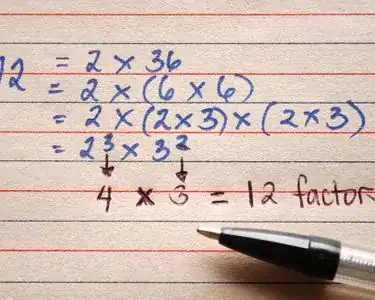 72 = 2 × 36
= 2 × (6 × 6)
= 2 × (2 × 3) × (2 × 3)
= 2³ × 3²
4 × 3 = 12 factor